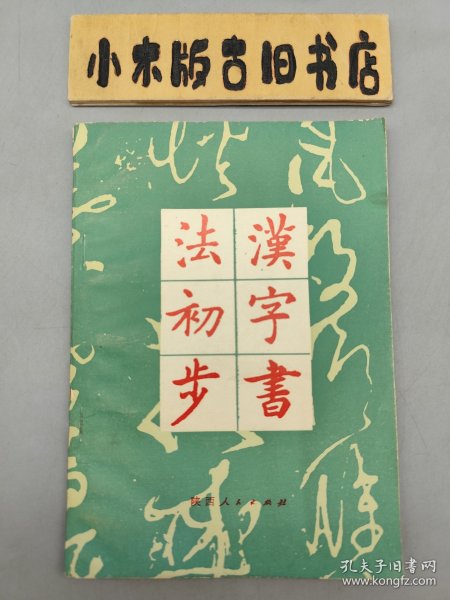 小木版古旧书店
漢字書
法初步
陕西人民出版社
孔夫子旧书网
www.kongfz.com